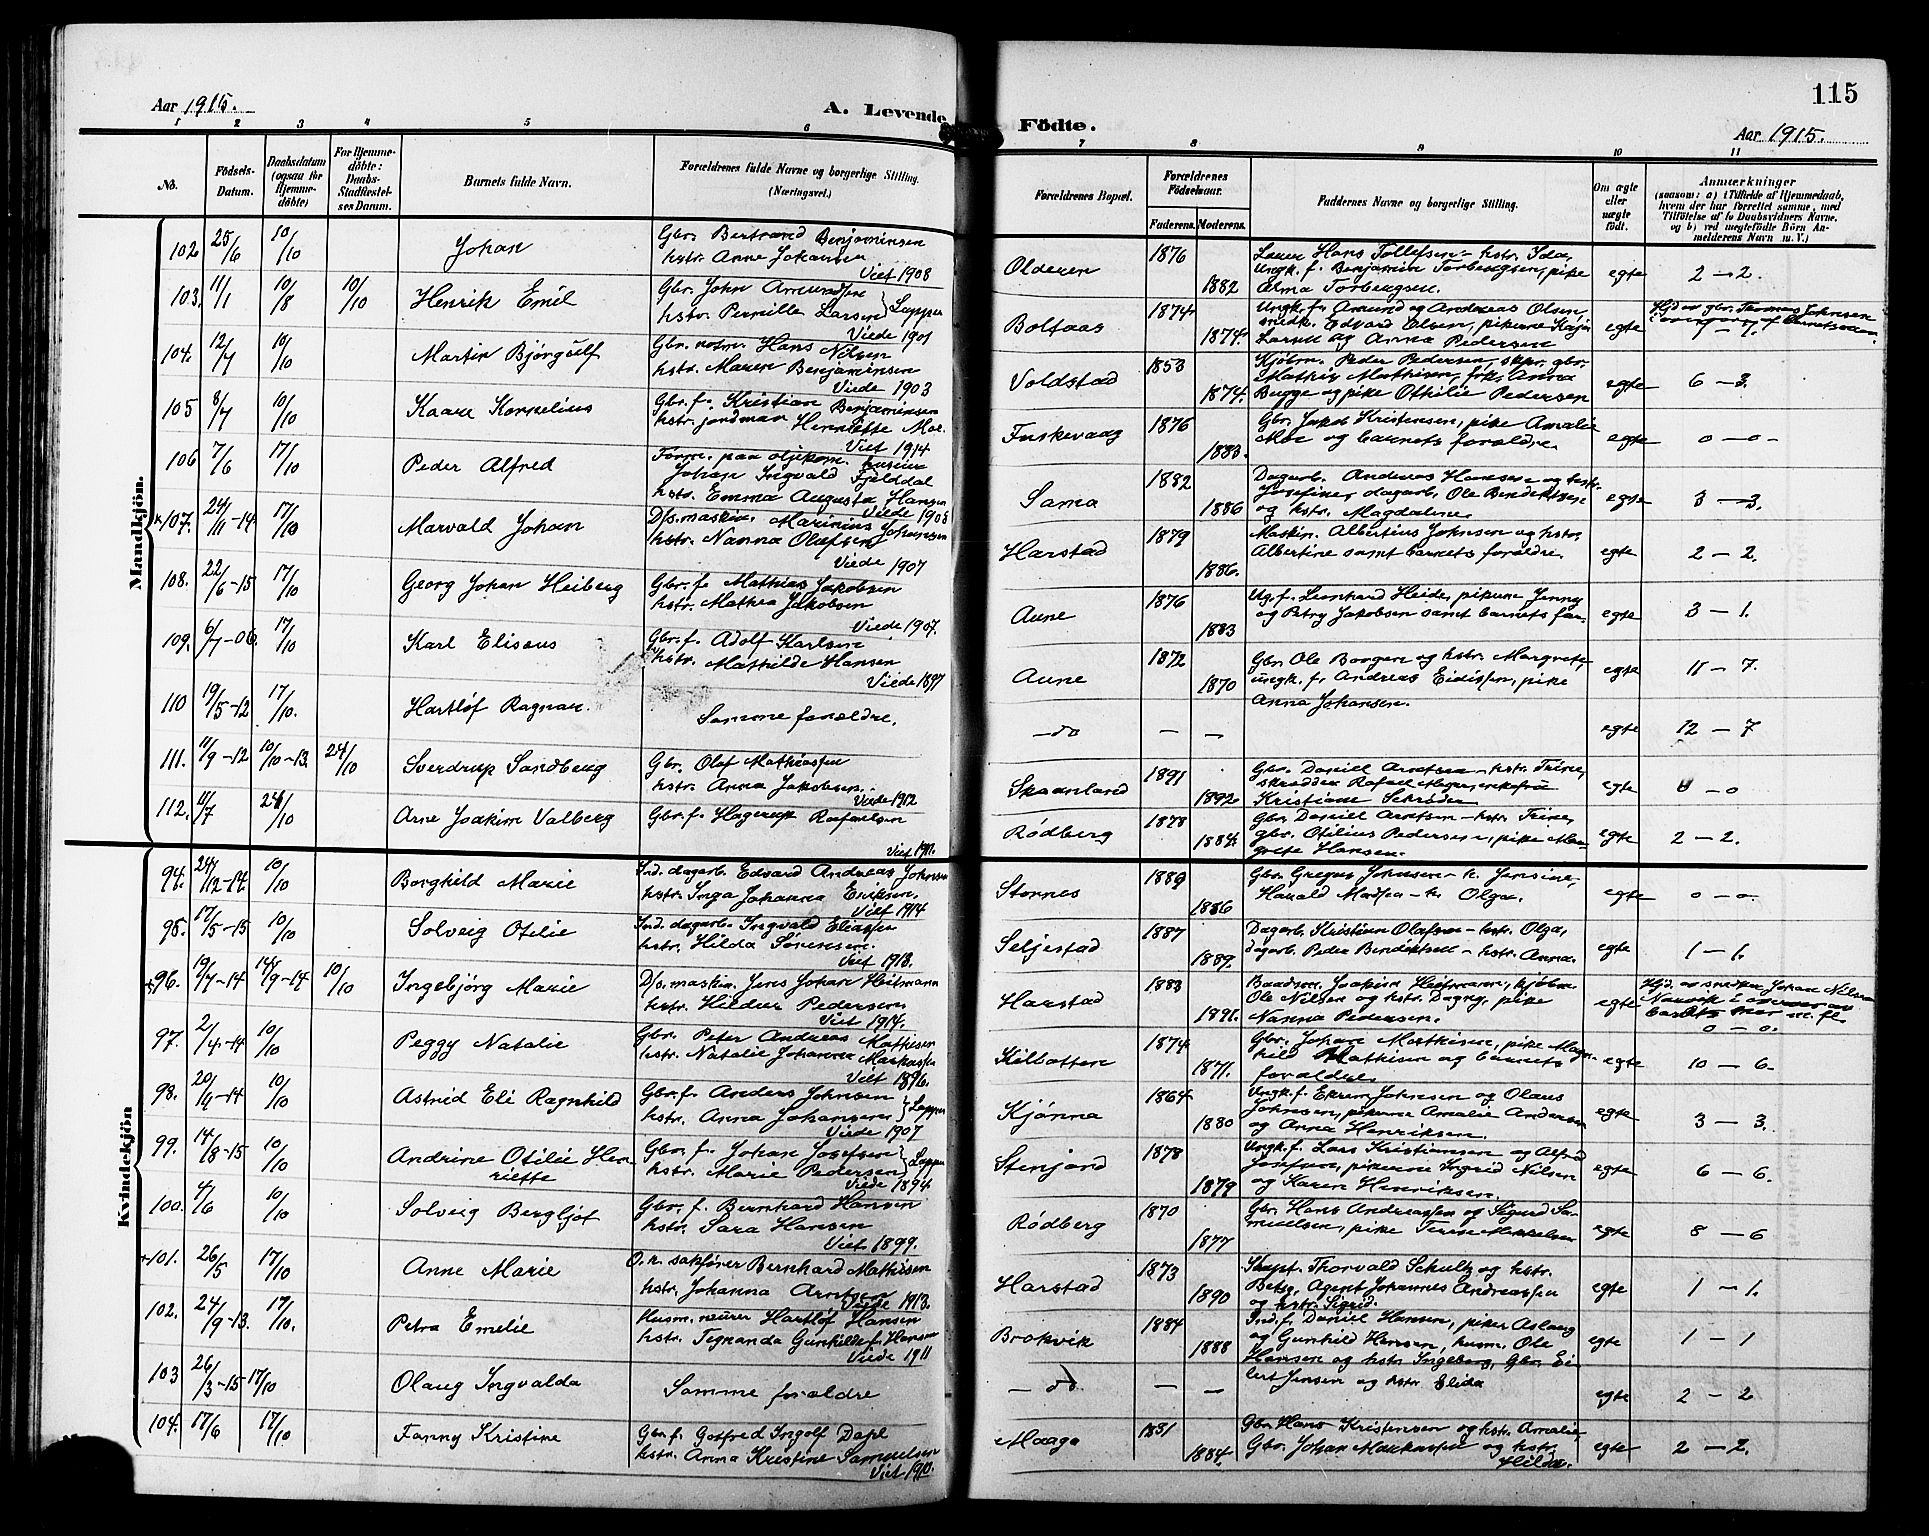 115
Aar 1915.
A. Levende
Födte.
Aar 1915.
1 2 3 4 5 6 7 8 9 10 11
No.
Födsels-Datum.
Daabsdatum (ogsaa for Hjemme-döbte)
For Hjemme-döbte: Daabs-Stadfestel-ses Datum.
Barnets fulde Navn.
Forældrenes fulde Navne og borgerlige Stilling. (Næringsvei.)
Forældrenes Bopæl.
Forældrenes Födselsaar.
Faderens. Moderens.
Faddernes Navne og borgerlige Stilling.
Om ægte eller uægte födt.
Anmærkninger
(saasom: a) i Tilfælde af Hjemmedaab, hvem der har forrettet samme, med Tilföielse af to Daabsvidners Navne, og b) ved uægtefödte Börn Anmelderens Navn m. V.)
Mandkjön.
102 25/6 10/10 Johan Gbr. Bertrand Benjaminsen
hstr. Anne Johansen
Viet 1908
Olderen 1876 1882 Hans Tollefsen - hstr. Ida,
Ungk. f. Benjamin Torbergsen, pike
Alma Torbergsen. egte 2 - 2.
103. 11/1 10/8 10/10 Henrik Emil Gbr. John Amundsen
hstr. Pernille Larsen } Lapper
Viede 1901
Bolfaas 1874 1874. Ungk. f. Amund og Andreas Olsen,
snedk. Edvard Olsen, pikerne Kaja
Larsen og Anna Pedersen egte
104. 12/7 10/10 Martin Bjørgulf Gbr. Hans Nilsen
hstr. Maren Benjaminsen
Viede 1903
Voldstad 1853 1874. Kjøbm. Peder Pedersen, gbr.
Mathis Mathisen, frk. Anna
Bugge og pike Othilie Pedersen egte 6 - 3.
105 8/7 10/10 Kaare Kornelius Gbr. f. Kristian Benjaminsen
hstr. jordmor Henriette Moe.
Viet 1914
Fuskevaag 1876 1883. Gbr. Jakob Kristensen, pike Amalie
Moe og barnets forældre. egte 0 - 0.
106 7/6 17/10 Peder Alfred Form. paa oljekom.
Johan Ingvald Fjelddal
hstr. Emma Augusta Hansen
Viede 1908
Sama 1882 1886 Dagarb. Andreas Hansen og hstr.
Josefine, dagarb. Ole Bendiktsen
og hstr. Magdalene. egte 3 - 3.
107. 24/11-14 17/10 Marvald Johan D/s. maskin. Marinius Johansen
hstr. Nanna Olafsen
Viede 1907
Harstad 1879 1886. Maskin. Albertius Johnsen og hstr.
Albertine samt barnets forældre. egte 2 - 2.
108. 22/6-15 17/10 Georg Johan Heiberg Gbr. f. Mathias Jakobsen
hstr. Mathea Jakobsen
Viede 1907.
Aune 1876 1883 Ug. f. Leonhard Heide, pikerne Jenny
og Petry Jakobsen samt barnets far. egte 3 - 1.
109. 6/7-06. 17/10 Karl Elisæus Gbr. f. Adolf Karlsen
hstr. Mathilde Hansen
Viede 1897
Aune 1872 1870 Gbr. Ole Borgen og hstr. Margrete,
ungk. f. Andreas Eidissen, pike
Anna Johansen. egte 11 - 7.
110 19/5-12 17/10. Hartløf Ragnar. Samme forældre.
- do - - egte 12 - 7
111. 11/9-12 10/10-13. 24/10 Sverdrup Sandberg Gbr. Olaf Mathiassen
hstr. Anna Jakobsen.
Viede 1912
Skaanland 1891 1892 Gbr. Daniel Arntsen - hstr. Trine,
skrædder Rafael, enkefru
Kristiane Schrøder egte 0 - 0
112. 11/7 24/10 Arne Joakim Valberg Gbr. f. Hagerup Rafaelsen
Viet 1911.
Rødberg 1878 1884. Gbr. Daniel Arntsen - hstr. Trine,
gbr. Otilius Pedersen, pike Mar-
grete Hansen. egte 2 - 2.
Kvindekjön
94. 24/12-14. 10/10 Borghild Marie Ind. dagarb. Edvard Andreas Johnsen
hstr. Inga Johanna Eriksen,
Viet 1914
Stornes 1889 1886 Gbr. Gregus Johnsen - h. Jensine,
Harald Madsen - h. Olga. egte 0 - 0.
95. 17/5-15 10/10 Solveig Otilie Ind. dagarb. Ingvald Eliassen
hstr. Hilda Sørensen.
Viet 1913.
Seljestad 1887 1889. Dagarb. Kristian Olafsen - hstr. Olga,
dagarb. Peder Bendiktsen - hstr. Anna. egte 1 - 1.
96. 19/7-14 14/9-14 10/10 Ingebjørg Marie D/s. maskin. Jens Johan Heitmann
hstr. Hildur Pedersen
Viet 1914.
Harstad 1883 1891. Baadsm. Joakim Heitmann, kjøbm.
Ole Nilsen og hstr. Dagny, pike
Nanna Pedersen. egte Hjd. av snedker Johan Nilsen
Narvik m. fl.
0 - 0.
97. 2/4-14 10/10 Peggy Natalie Gbr. Peter Andreas Mathisen
hstr. Natalie Johanna Markussen
Viet 1896.
Kilbotten 1874 1871. Gbr. Johan Mathisen, pike Magn-
hild Mathisen og barnets
forældre. egte 10 - 6.
98. 20/4-14 10/10 Astrid Eli Ragnhild Gbr. f. Anders Johnsen
hstr. Anna Johansen } Lapper
Viede 1907
Kjønna 1864 1880 Ungk. f. Johnsen og Olaus
Johnsen, pikerne Amalie Andersen
og Anna Henriksen. egte 3 - 3.
99. 14/8-15 10/10 Andrine Otilie Hen-
riette Gbr. f. Johan Josefsen
hstr. Marie Pedersen } Lapper
Viede 1894
Stenjord 1873 1879 Ungk. f. Lars Kristiansen og Alfred
Josefsen, pikerne Ingrid Nilsen
og Karen Henriksen. egte 6 - 6.
100. 4/6 10/10 Solveig Bergljot Gbr. f. Bernhard Hansen
hstr. Sara Hansen
Viet 1899.
Rødberg 1870 1877 Gbr. Hans Andreassen og Sigurd Sa-
muelsen, pike Mikkelsen egte 8 - 6
101. 26/5 17/10 Anne Marie O.r. sakfører Bernhard Mathisen
hstr. Johanna Arntsen
Viede 1913.
Harstad 1873 1890 Kapt. Thorvald Schultz og hstr.
Betsy, Agent Johannes Andreassen
og hstr. Sigrid. egte 1 - 1.
102. 24/9-13. 17/10. Petra Emelie Husm. Hartløf Hansen
hstr. Hansen
Viede 1911
Brokvik 1884 1888 Ind. f. Daniel Hansen, piker Aslaug
og Gunhild Hansen, husm. Ole
Hansen og hstr. Ingeborg, Gbr. Ei-
lert Jensen og hstr. Elida egte 1 - 1
103 26/3-15 17/10 Olaug Ingvalda Samme forældre
- do - - egte 2 - 2
104. 17/6 17/10 Fanny Kristine Gbr. f. Gotfred Ingolf Dahl
hstr. Anna Kristine Samuelsen
Viet 1910.
Maaga 1881 1884. Gbr. Hans Kristensen og hstr. Amalie,
Gbr. Johan Markussen og hstr.
Hilda. egte 2 - 2.